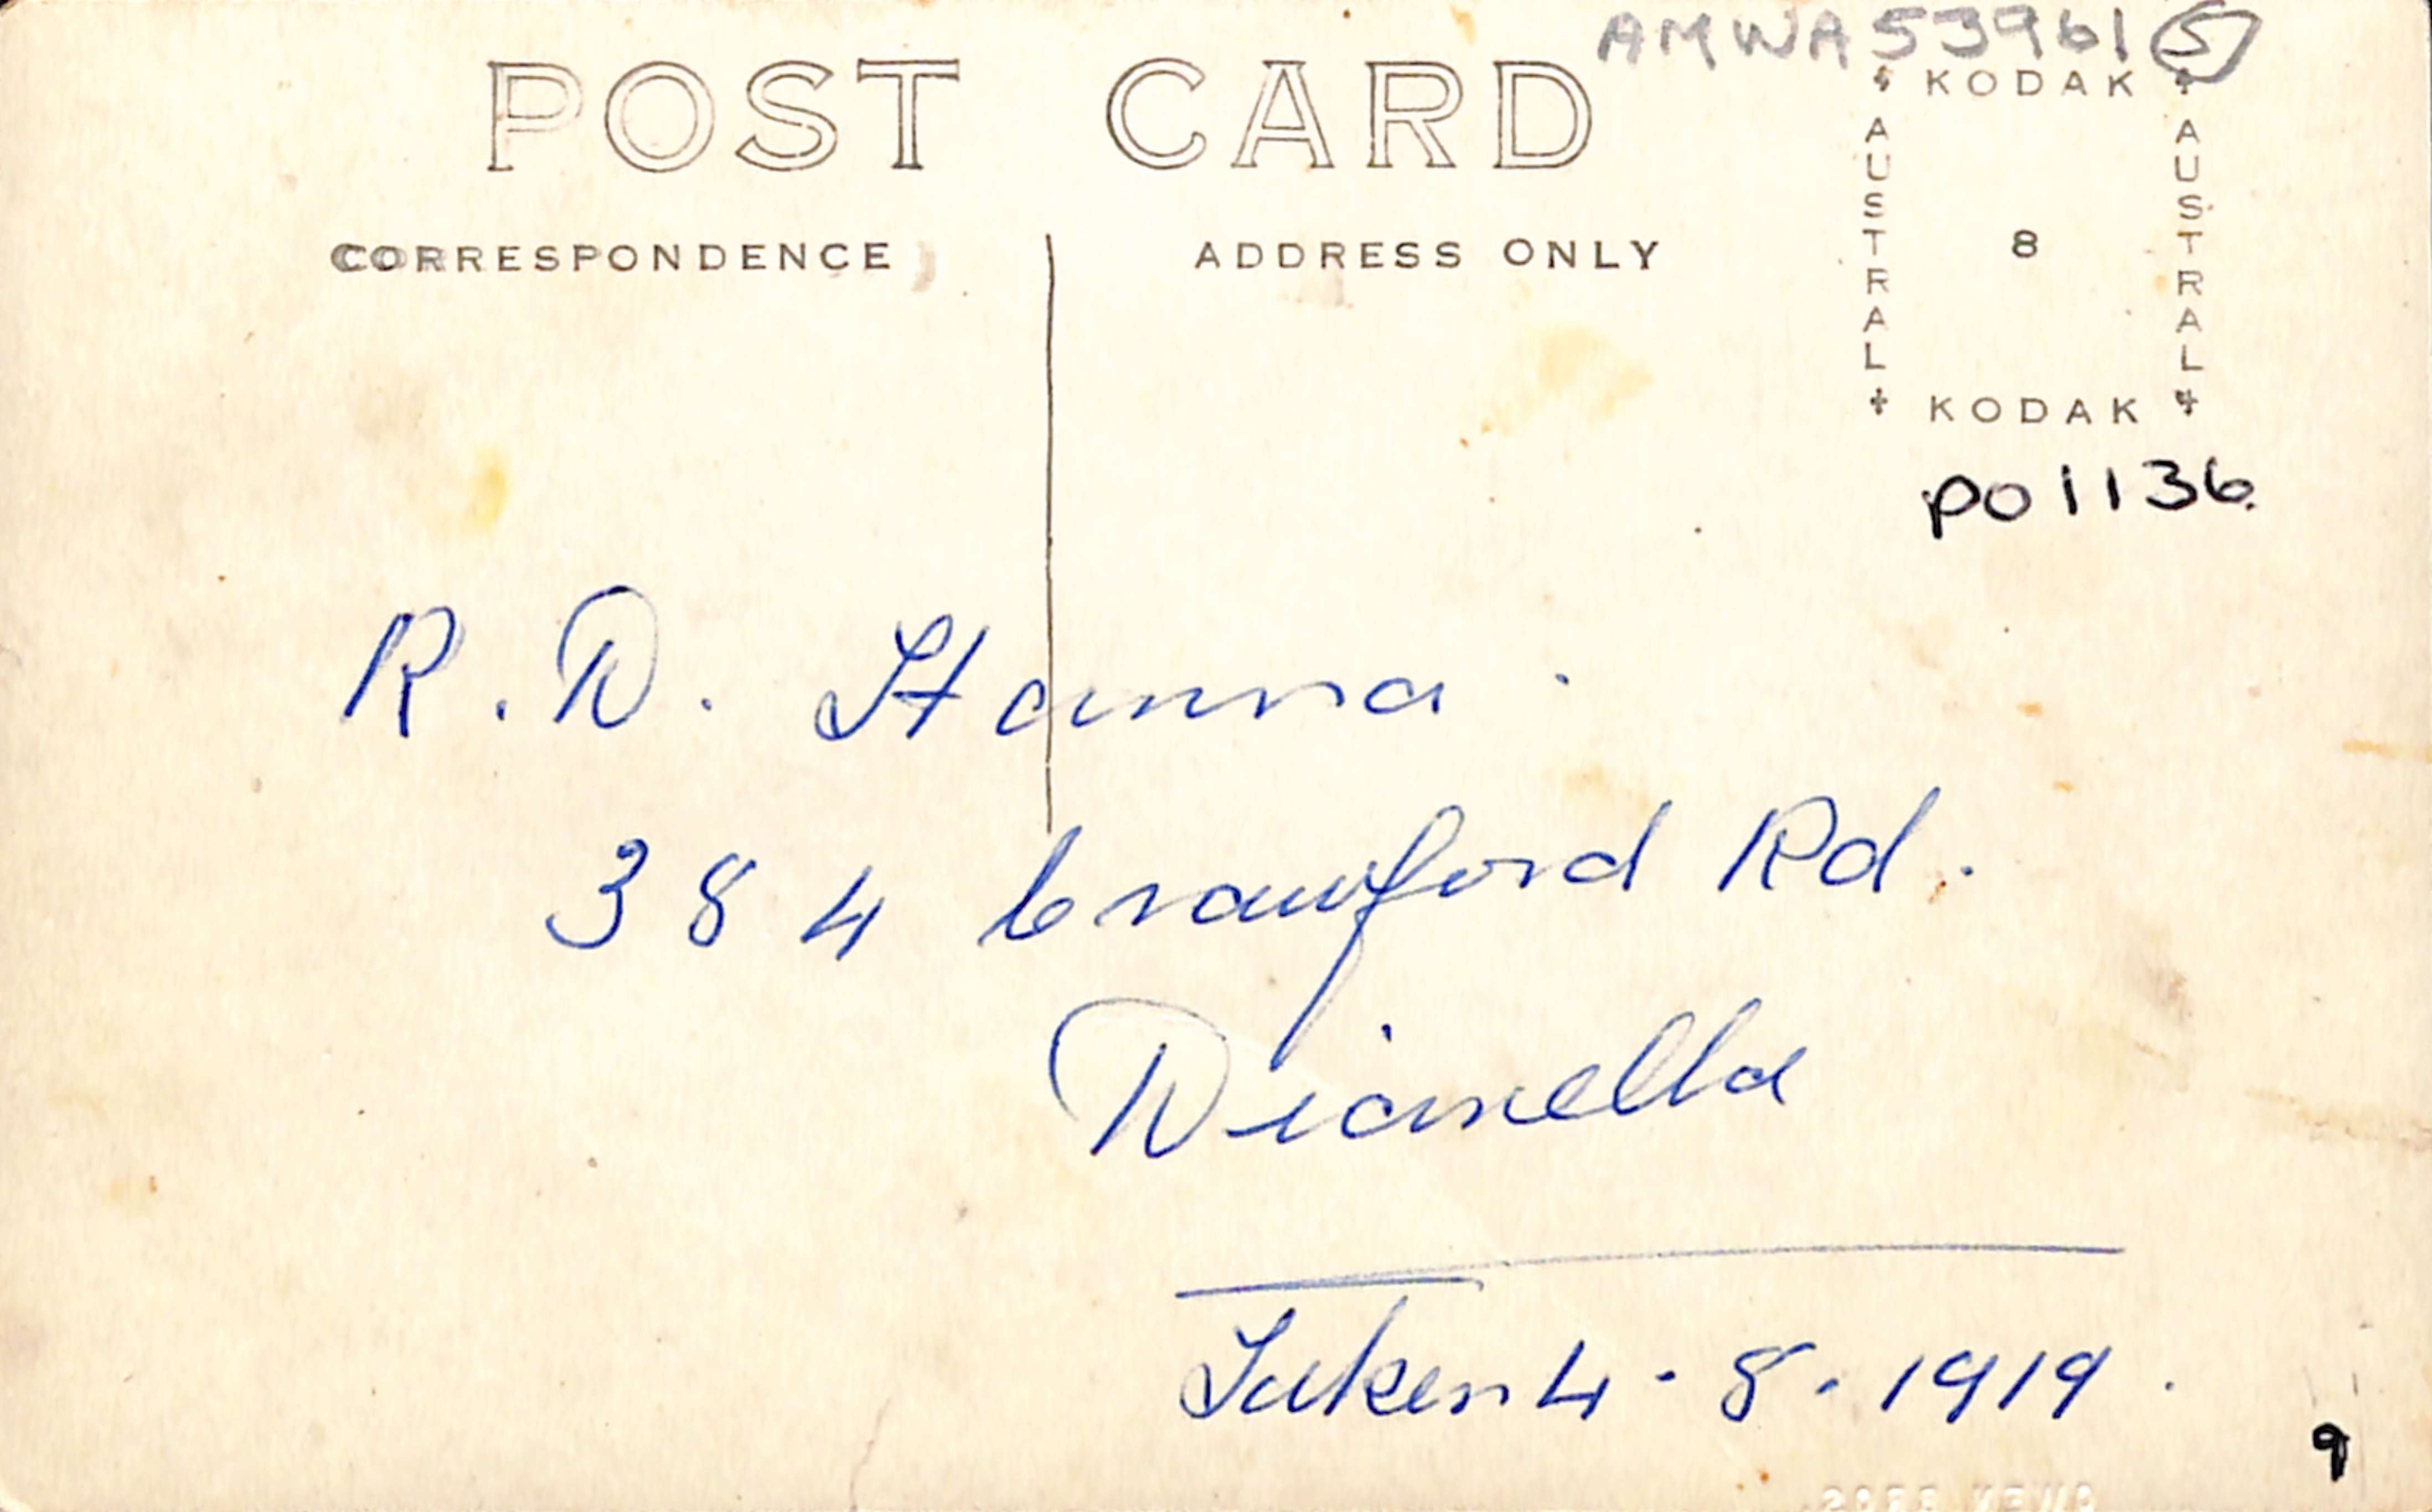 AMWA53961 5
POST CARD
KODAK
AUSTRAL
8
AUSTRAL
KODAK
CORRESPONDENCE
ADDRESS ONLY
PO1136
R. D. Hanna.
384 Crawford Rd.
Dianella
Taken 4.8.1919.
9
OWEN BROS